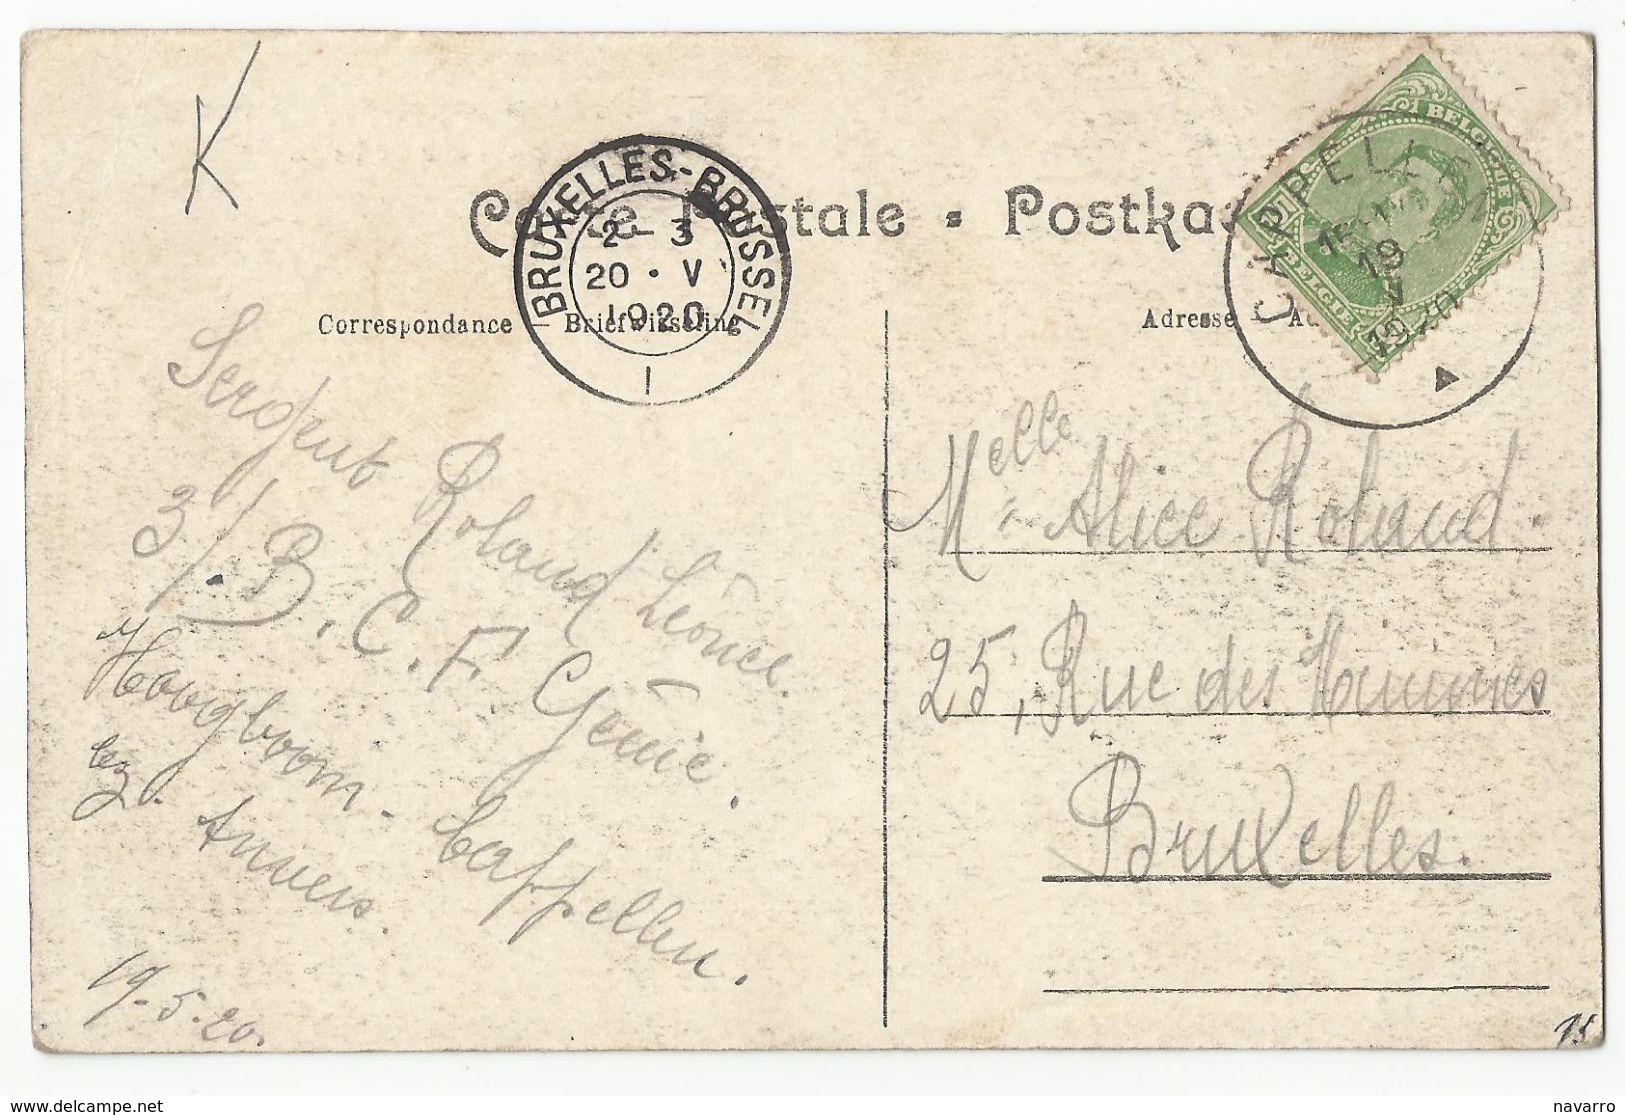 K
Carte Postale - Postkaart
BRUXELLES-BRUSSEL
2-3
20 • V
1920
1
BELGIQUE
BELGIË
CAPPELLEN
19
V
1920
Correspondance – Briefwisseling
Adresse –
Sergent Roland Léonce.
3/B. C. F Génie.
Hoogboom. Cappellen.
lez. Anvers.
19-5-20.
Melle Alice Roland.
25, Rue des Minimes
Bruxelles.
15
delcampe.net
navarro